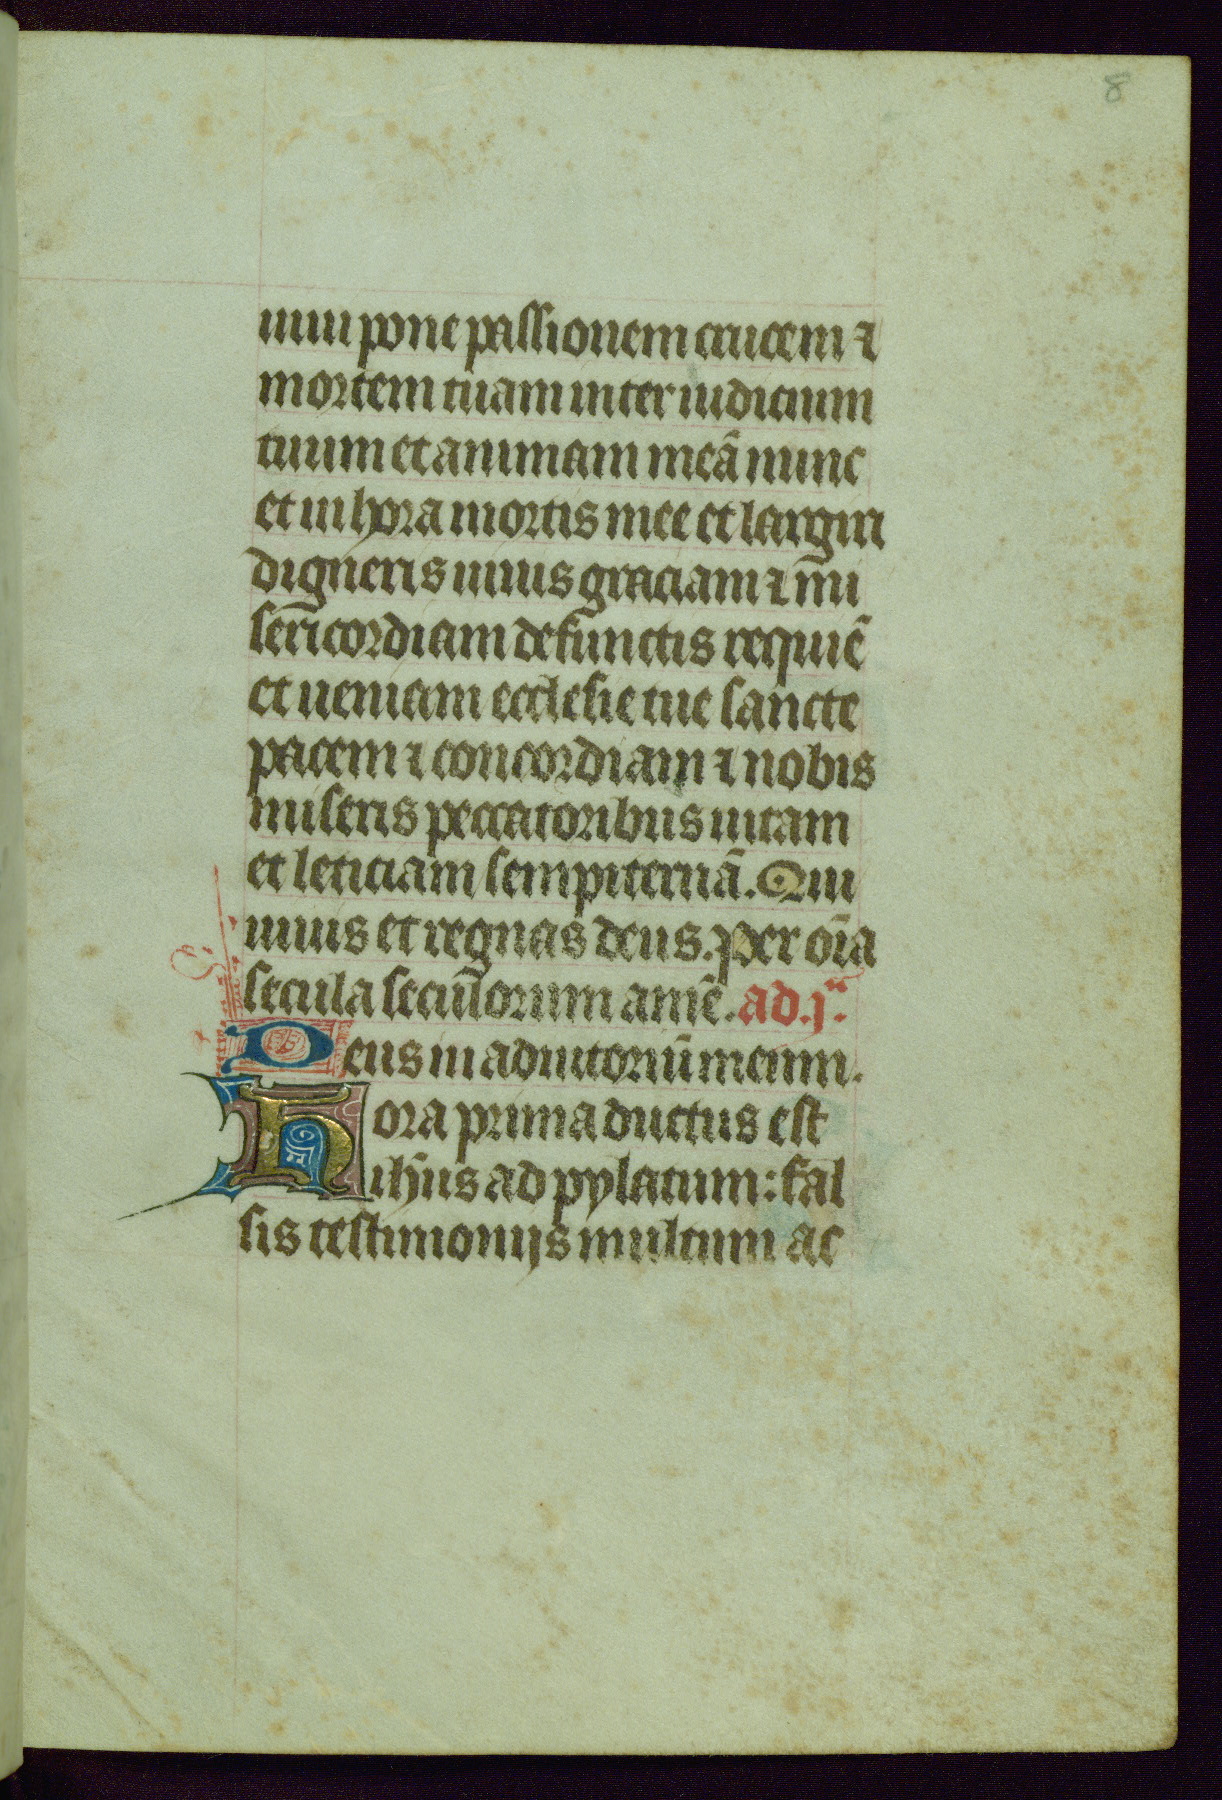 8
uiui pone passionem crucem ⁊
mortem tuam inter iudicium
tuum et animam meā nunc
et in hora mortis mee et largiri
digneris uiuis graciam ⁊ mi
sericordiam defunctis requiē
et ueniam ecclesie tue sancte
pacem ⁊ concordiam ⁊ nobis
miseris peccatoribus uitam
et leticiam sempiternā. Qui
uiuis et regnas deus. per oīa
secula seculorum amē. ad .jª.
Deus in adiutoriū meum.
Hora prima ductus est
ihūs ad pylatum: fal
sis testimonijs multum ac